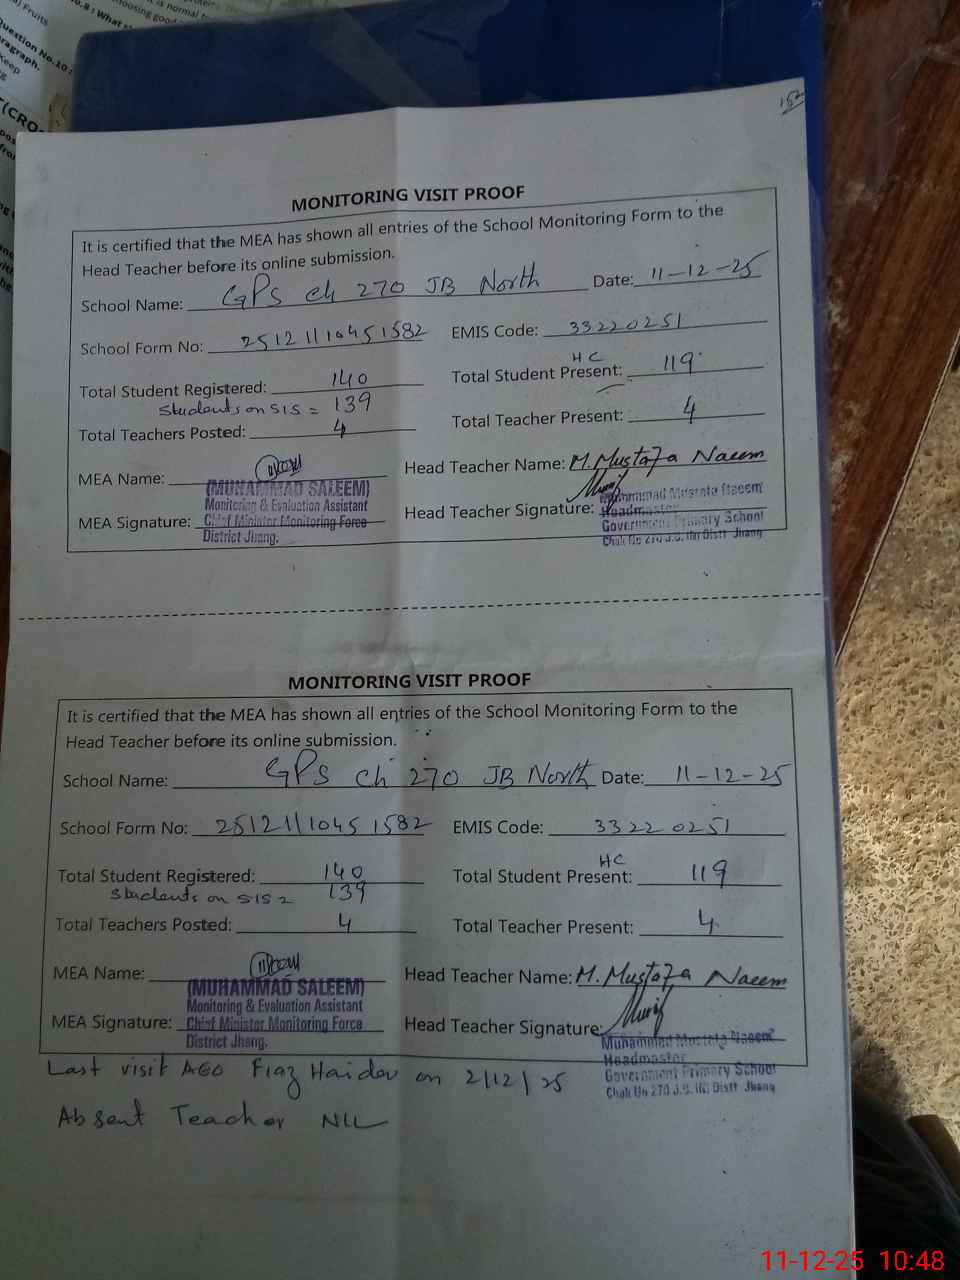 152
MONITORING VISIT PROOF
It is certified that the MEA has shown all entries of the School Monitoring Form to the
Head Teacher before its online submission.
School Name: GPS ch 270 JB North Date: 11-12-25
School Form No: 25121110451582 EMIS Code: 33220251
Total Student Registered: 140 Total Student Present: HC 119
Students on SIS = 139
Total Teachers Posted: 4 Total Teacher Present: 4
MEA Name: Head Teacher Name: M. Mustafa Naeem
(MUHAMMAD SALEEM)
Monitoring & Evaluation Assistant
MEA Signature: Chief Minister Monitoring Force
District Jhang.
Head Teacher Signature:
Muhammad Mustafa Naeem
Headmaster
Government Primary School
Chak No 270 J.B. Distt Jhang
MONITORING VISIT PROOF
It is certified that the MEA has shown all entries of the School Monitoring Form to the
Head Teacher before its online submission.
School Name: GPS ch 270 JB North Date: 11-12-25
School Form No: 25121110451582 EMIS Code: 33220251
Total Student Registered: 140 Total Student Present: HC 119
Students on SIS = 139
Total Teachers Posted: 4 Total Teacher Present: 4
MEA Name: Head Teacher Name: M. Mustafa Naeem
(MUHAMMAD SALEEM)
Monitoring & Evaluation Assistant
MEA Signature: Chief Minister Monitoring Force
District Jhang.
Head Teacher Signature:
Muhammad Mustafa Naeem
Headmaster
Government Primary School
Chak No 270 J.B. Distt Jhang
Last visit AEO Fiaz Haider on 2/12/25
Absent Teacher NIL
11-12-25 10:48